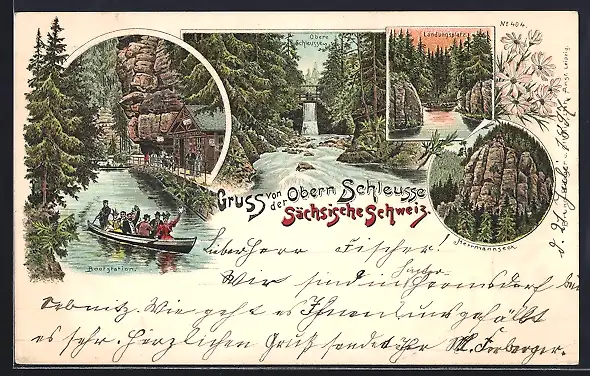 No 404.
Obere
Schleusse.
Landungsplatz.
Gruss von
der Obern Schleusse
Sächsische Schweiz.
Bootstation.
Herrmannseck.
Lieber Herr Fischer!
Wir sind in Hermsdorf bei
Sebnitz. Wie geht es Ihnen uns gefällt
es sehr. Herzlichen Gruß sendet Ihr M. Forberger.